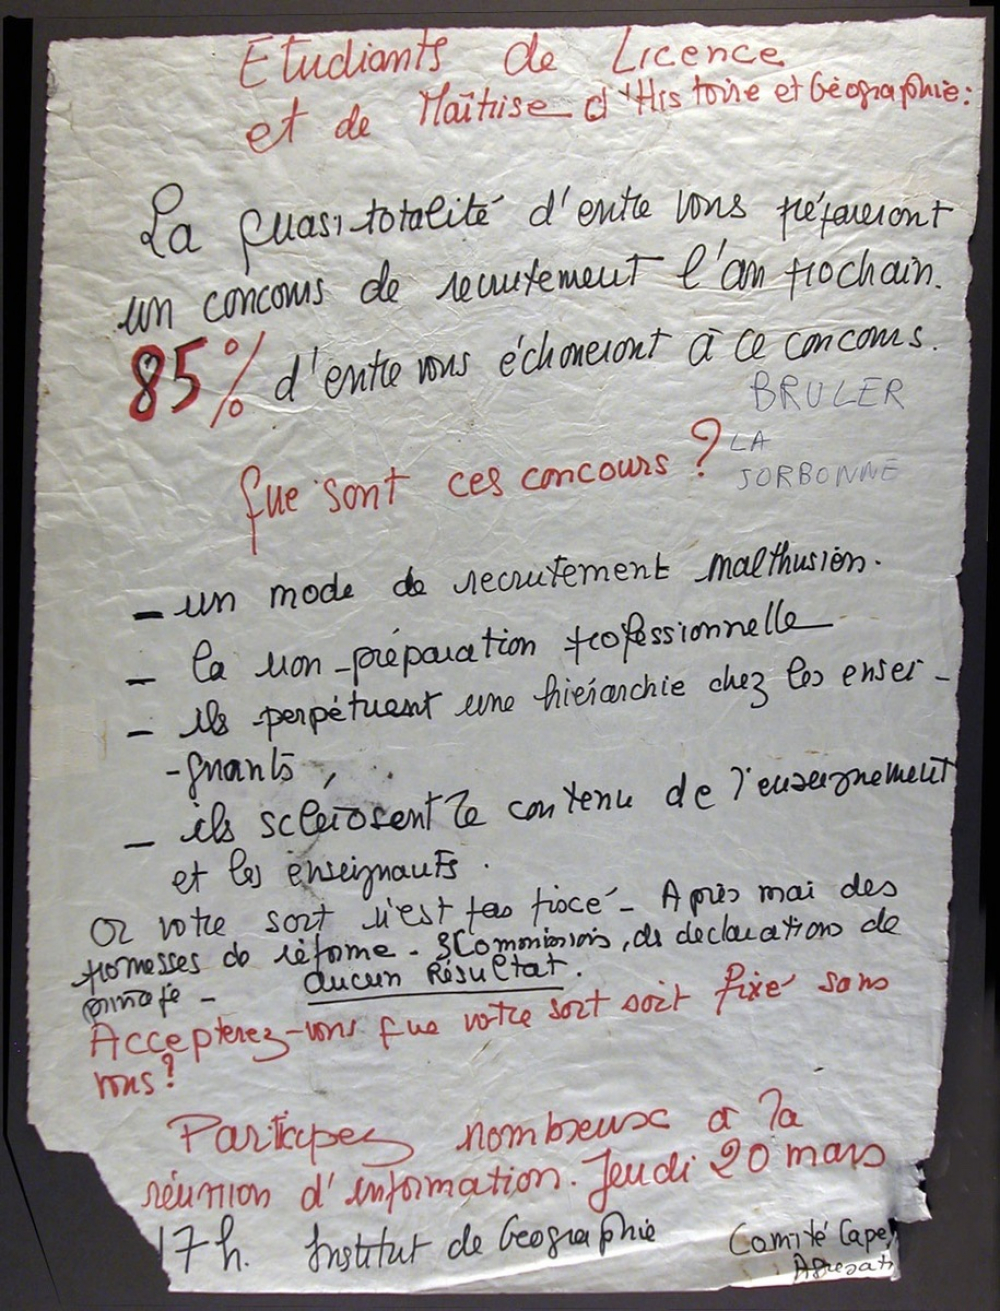 Etudiants de Licence
et de Maîtrise d'Histoire et Géographie:
La quasi totalité d'entre vous prépareront
un concours de recrutement l'an prochain.
85% d'entre vous échoueront à ce concours.
BRULER
LA
SORBONNE
Que sont ces concours?
- un mode de recrutement malthusien.
- la non-préparation professionnelle
- ils perpétuent une hiérarchie chez les ensei-
-gnants,
- ils sclérosent le contenu de l'enseignement
et les enseignants.
Or votre sort n'est pas fixé - Après mai des
promesses de réforme - 3 Commissions, des declarations de
principe - aucun Résultat.
Accepterez-vous que votre sort soit fixé sans
vous?
Participez nombreux à la
réunion d'information. Jeudi 20 mars
17h. Institut de Géographie
Comité Capes
Agregati